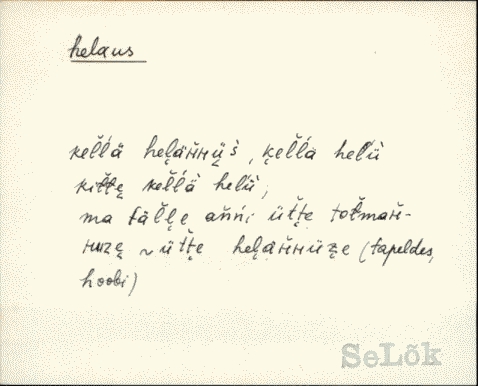 helaus
kell̆ä heĺäʜ̆ʜüš, kell̆ä helü
kitte kell̆ä helü,
ma täl̆l̆e ańńi üt̆t̆e tot̆maʜ̆-
ʜuze ~ üt̆t̆e heĺäʜ̆ʜüze (tapeldes,
hoobi)
SeLõk